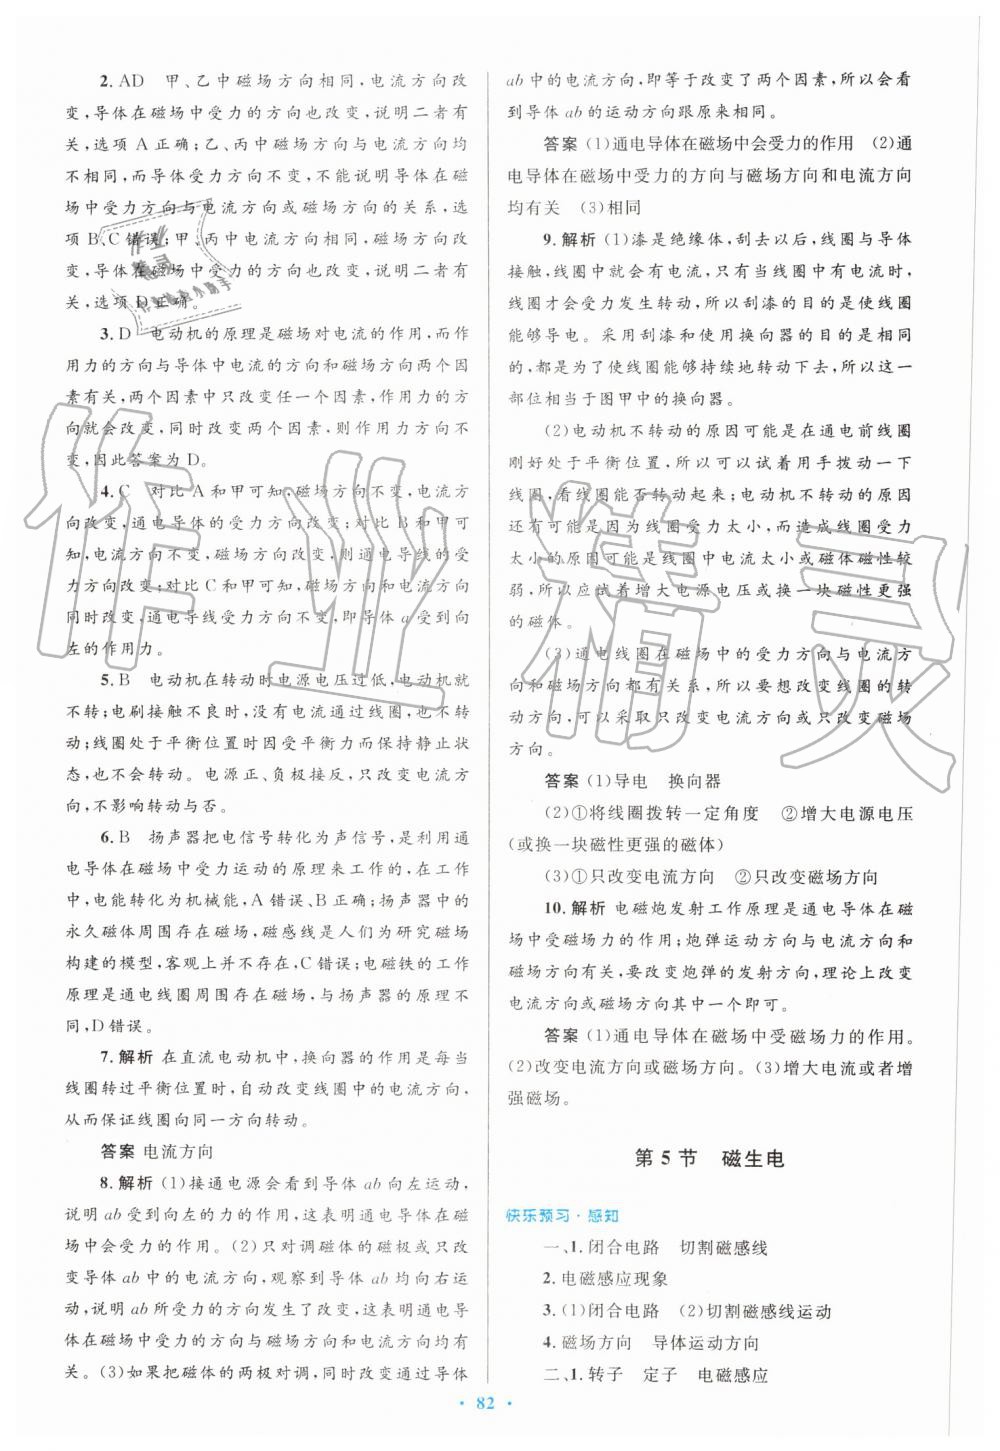 2. AD　甲、乙中磁场方向相同,电流方向改
变,导体在磁场中受力的方向也改变,说明二者有
关,选项 A 正确;乙、丙中磁场方向与电流方向均
不相同,而导体受力方向不变,不能说明导体在磁
场中受力方向与电流方向或磁场方向的关系,选
项 B、C 错误;甲、丙中电流方向相同,磁场方向改
变,导体在磁场中受力的方向也改变,说明二者有
关,选项 D 正确。
3. D　电动机的原理是磁场对电流的作用,而作
用力的方向与导体中电流的方向和磁场方向两个因
素有关,两个因素中只改变任一个因素,作用力的方
向就会改变,同时改变两个因素,则作用力方向不
变,因此答案为 D。
4. C　对比 A 和甲可知,磁场方向不变,电流方
向改变,通电导体的受力方向改变;对比 B 和甲可
知,电流方向不变,磁场方向改变,则通电导线的受
力方向改变;对比 C 和甲可知,磁场方向和电流方向
同时改变,通电导线受力方向不变,即导体 a 受到向
左的作用力。
5. B　电动机在转动时电源电压过低,电动机就
不转;电刷接触不良时,没有电流通过线圈,也不转
动;线圈处于平衡位置时因受平衡力而保持静止状
态,也不会转动。电源正、负极接反,只改变电流方
向,不影响转动与否。
6. B　扬声器把电信号转化为声信号,是利用通
电导体在磁场中受力运动的原理来工作的,在工作
中,电能转化为机械能,A 错误、B 正确;扬声器中的
永久磁体周围存在磁场,磁感线是人们为研究磁场
构建的模型,客观上并不存在,C 错误;电磁铁的工作
原理是通电线圈周围存在磁场,与扬声器的原理不
同,D 错误。
7. 解析　在直流电动机中,换向器的作用是每当
线圈转过平衡位置时,自动改变线圈中的电流方向,
从而保证线圈向同一方向转动。
答案　电流方向
8. 解析　(1)接通电源会看到导体 ab 向左运动,
说明 ab 受到向左的力的作用,这表明通电导体在磁
场中会受力的作用。(2)只对调磁体的磁极或只改
变导体 ab 中的电流方向,观察到导体 ab 均向右运
动,说明 ab 所受力的方向发生了改变,这表明通电导
体在磁场中受力的方向与磁场方向和电流方向均有
关。(3)如果把磁体的两极对调,同时改变通过导体
ab 中的电流方向,即等于改变了两个因素,所以会看
到导体 ab 的运动方向跟原来相同。
答案　(1)通电导体在磁场中会受力的作用　(2)通
电导体在磁场中受力的方向与磁场方向和电流方向
均有关　(3)相同
9. 解析　(1)漆是绝缘体,刮去以后,线圈与导体
接触,线圈中就会有电流,只有当线圈中有电流时,
线圈才会受力发生转动,所以刮漆的目的是使线圈
能够导电。采用刮漆和使用换向器的目的是相同
的,都是为了使线圈能够持续地转动下去,所以这一
部位相当于图甲中的换向器。
(2)电动机不转动的原因可能是在通电前线圈
刚好处于平衡位置,所以可以试着用手拨动一下
线圈,看线圈能否转动起来;电动机不转动的原因
还有可能是因为线圈受力太小,而造成线圈受力
太小的原因可能是线圈中电流太小或磁体磁性较
弱,所以应试着增大电源电压或换一块磁性更强
的磁体。
(3)通电线圈在磁场中的受力方向与电流方
向和磁场方向都有关系,所以要想改变线圈的转
动方向,可以采取只改变电流方向或只改变磁场
方向。
答案　(1)导电　换向器
(2)①将线圈拨转一定角度　②增大电源电压
(或换一块磁性更强的磁体)
(3)①只改变电流方向　②只改变磁场方向
10. 解析　电磁炮发射工作原理是通电导体在磁
场中受磁场力的作用;炮弹运动方向与电流方向和
磁场方向有关,要改变炮弹的发射方向,理论上改变
电流方向或磁场方向其中一个即可。
答案　(1)通电导体在磁场中受磁场力的作用。
(2)改变电流方向或磁场方向。(3)增大电流或者增
强磁场。
第 5 节　磁生电
快乐预习·感知
一、1. 闭合电路　切割磁感线
2. 电磁感应现象
3. (1)闭合电路　(2)切割磁感线运动
4. 磁场方向　导体运动方向
二、1. 转子　定子　电磁感应
· 82 ·
作业精灵